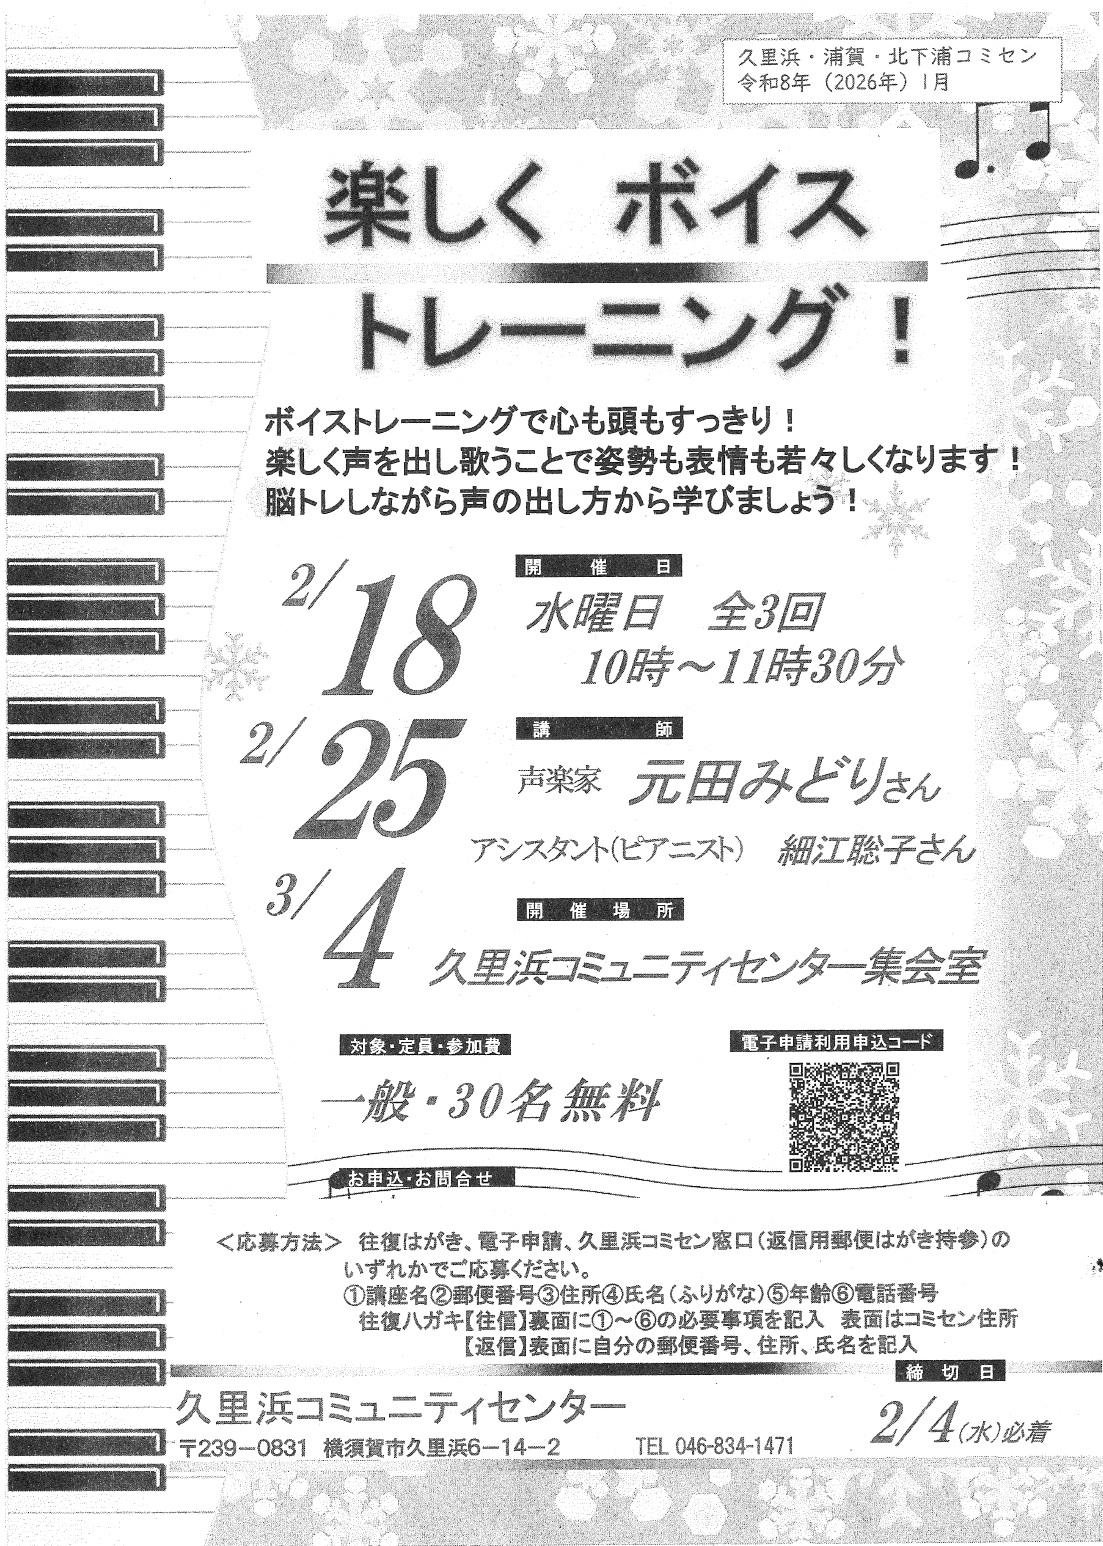 久里浜・浦賀・北下浦コミセン
令和8年（2026年）1月
楽しく ボイス
トレーニング！
ボイストレーニングで心も頭もすっきり！
楽しく声を出し歌うことで姿勢も表情も若々しくなります！
脳トレしながら声の出し方から学びましょう！
2/18
2/25
3/4
開催日
水曜日 全3回
10時～11時30分
講師
声楽家 元田みどりさん
アシスタント(ピアニスト) 細江聡子さん
開催場所
久里浜コミュニティセンター集会室
対象・定員・参加費
一般・30名無料
電子申請利用申込コード
お申込・お問合せ
＜応募方法＞ 往復はがき、電子申請、久里浜コミセン窓口(返信用郵便はがき持参)の
いずれかでご応募ください。
①講座名②郵便番号③住所④氏名(ふりがな)⑤年齢⑥電話番号
往復ハガキ【往信】裏面に①～⑥の必要事項を記入 表面はコミセン住所
【返信】表面に自分の郵便番号、住所、氏名を記入
締切日
久里浜コミュニティセンター
〒239－0831 横須賀市久里浜6－14－2 TEL 046-834-1471
2/4(水)必着